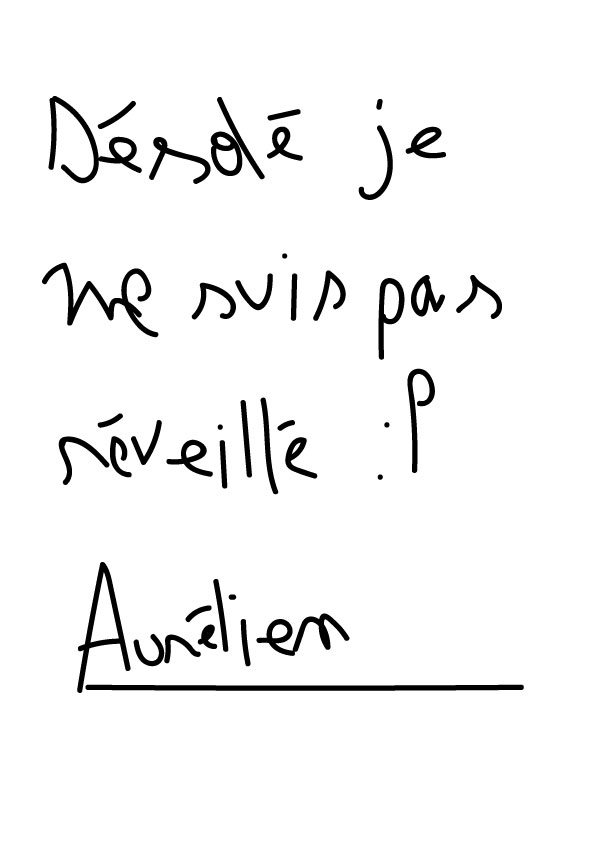 Désolé je
ne suis pas
réveillé :P
Aurélien